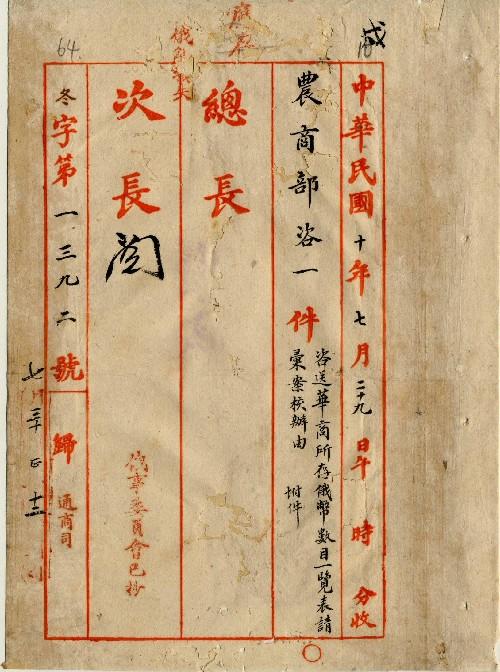 戍
中華民國十年七月二十九日午 時 分收
農商部咨一件
咨送華商所存俄幣數目一覽表請
彙案核辦由
附件
總長
次長 閻
俄事委員會已抄
冬字第一三九二號
歸 通商司
64